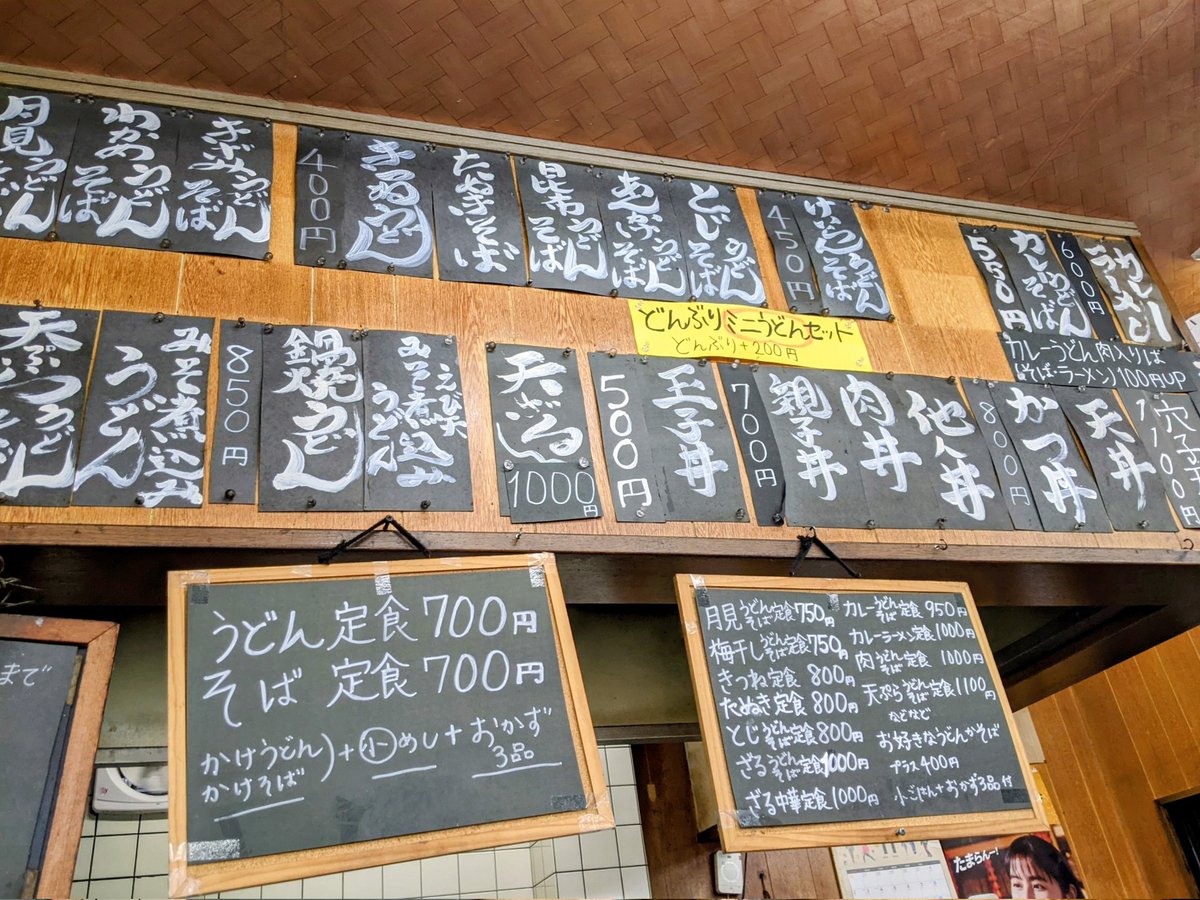 月見うどんそば
わかめうどんそば
きざみうどんそば
400円
きつねうどん
たぬきそば
昆布うどんそば
あんかけうどんそば
とじうどんそば
450円
けいらんうどんそば
550円
カレーうどんそば
600円
カレーラーメン
どんぶりミニうどんセット
どんぶり+200円
カレーうどん肉入りは
(そば・ラーメン)100円UP
天ぷらうどん
みそ煮込みうどん
850円
鍋焼うどん
えび天みそ煮込みうどん
天ざる
1000円
500円
玉子丼
700円
親子丼
肉丼
他人丼
800円
かつ丼
天丼
穴子丼
1100円
まで
うどん定食700円
そば定食700円
かけうどん
かけそば)+小めし+おかず3品
月見うどんそば定食750円
梅干しうどんそば定食750円
きつね定食800円
たぬき定食800円
とじうどんそば定食800円
ざるうどんそば定食1000円
ざる中華定食1000円
カレーうどんそば定食950円
カレーラーメン定食1000円
肉うどんそば定食1000円
天ぷらうどんそば定食1100円
などなど
お好きなうどんかそば
プラス400円
小ごはん+おかず3品付
たまらんー!